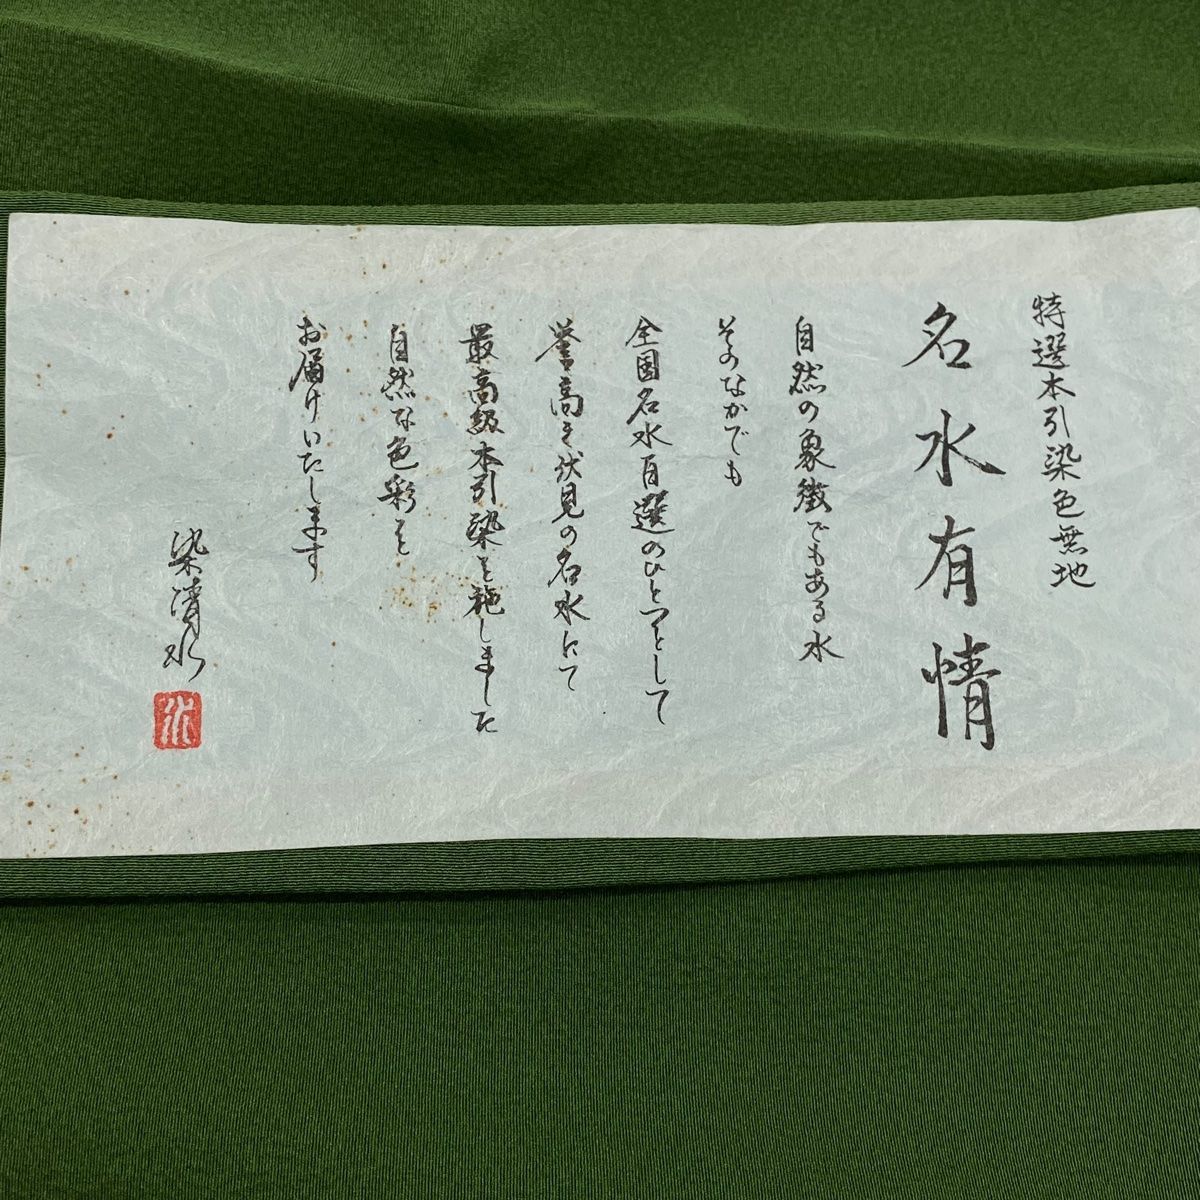 特選本引染色無地
名水有情
自然の象徴でもある水
そのなかでも
全国名水百選のひとつとして
誉高き伏見の名水にて
最高級本引染を施しました
自然な色彩を
お届けいたします
染清水